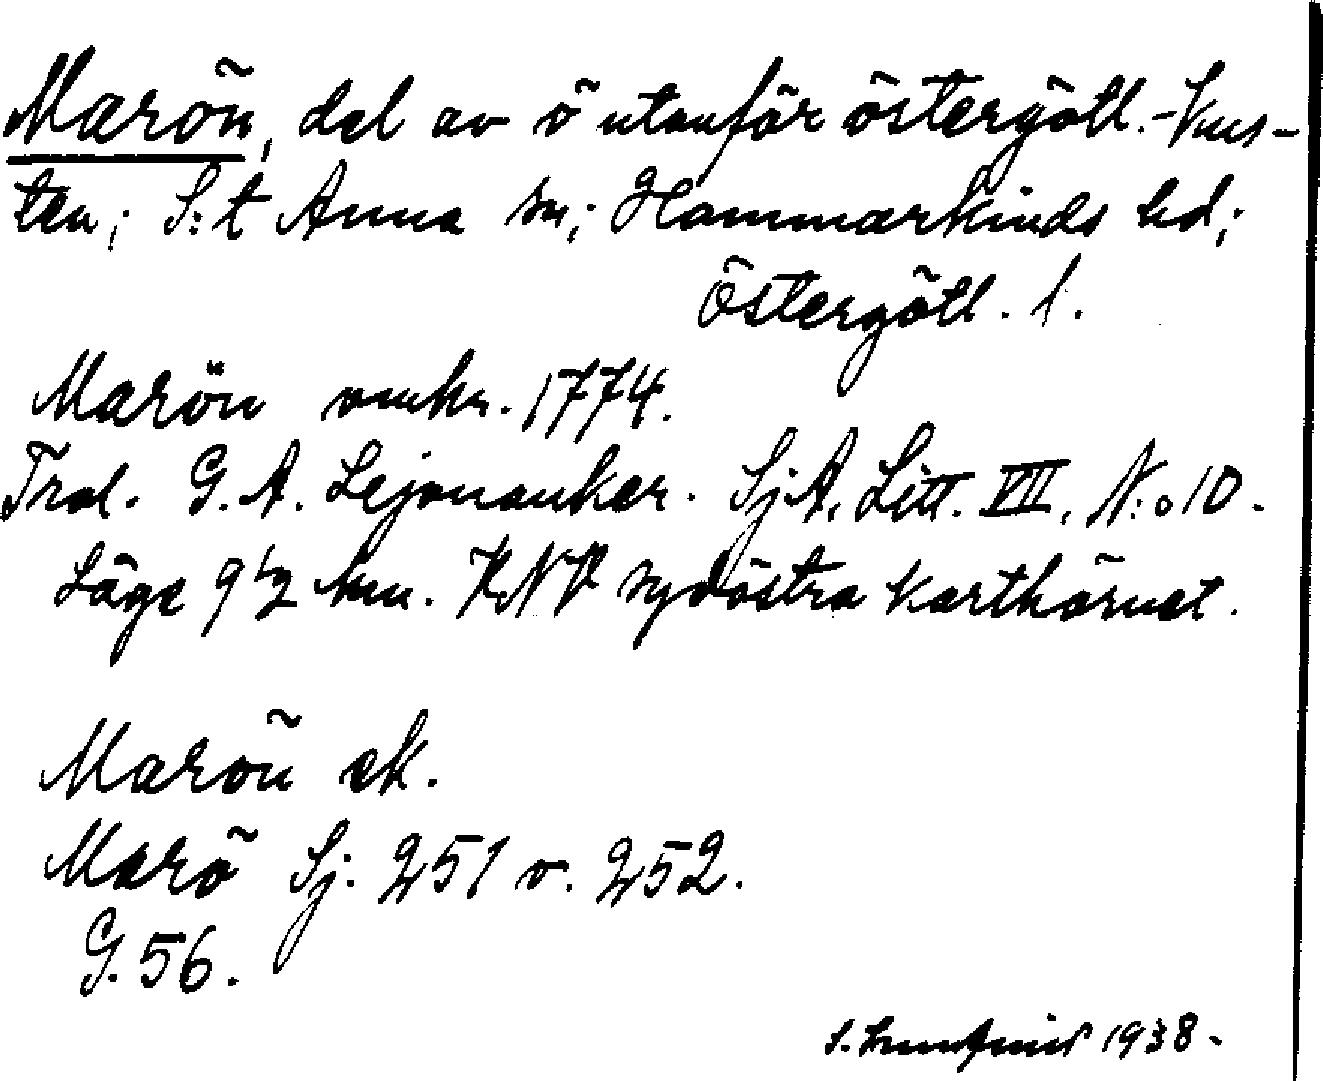 Marön, del av ö utanför östergötl.-kus-
ten; S:t Anna sn; Hammarkinds hd;
Östergötl. l.
Marön omkr. 1774.
Trol. G. A. Lejonanker. SjA, Litt. VIII, N:o 10.
Läge 9 1/2 km. VNV sydöstra karthörnet.
Marön ek.
Marö Sj. 251 o. 252.
G. 56.
1938.